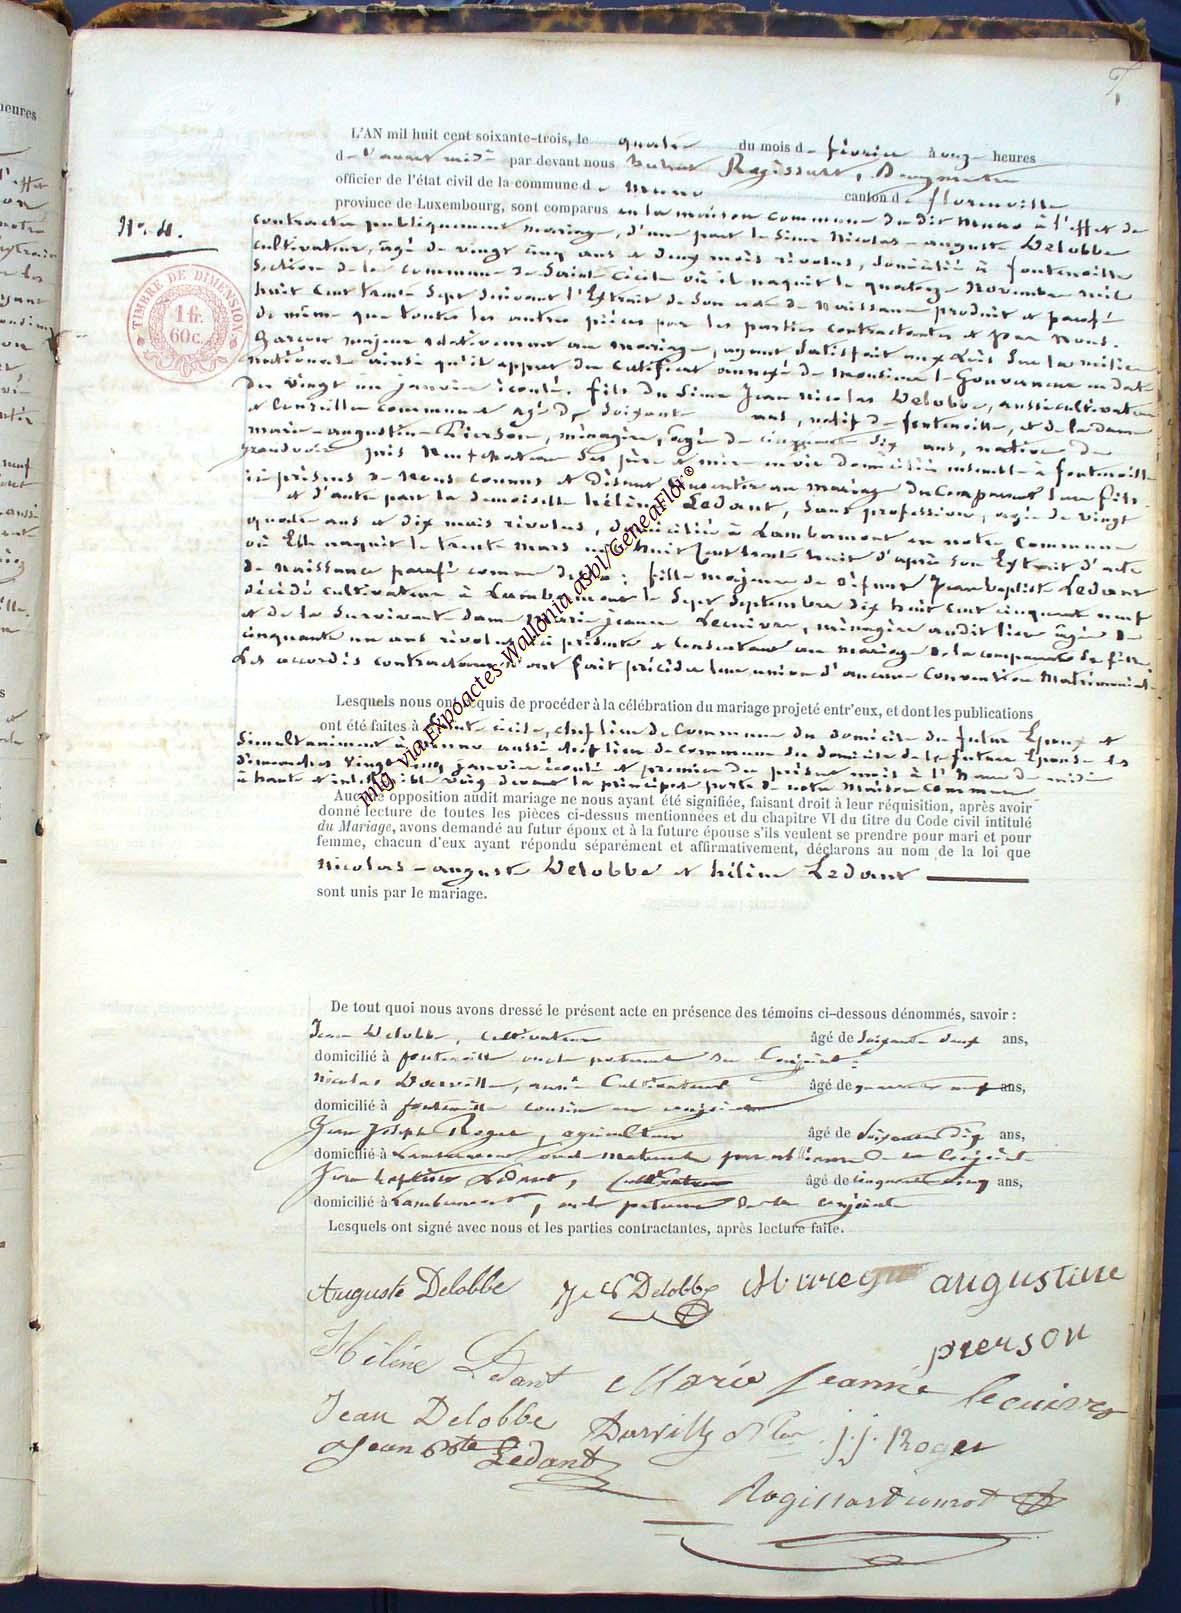 L'AN mil huit cent soixante-trois, le quatre du mois de février à onze heures
de l'avant midi par devant nous Rogissart, Bourgmestre
officier de l'état civil de la commune de Muno canton de florenville
province de Luxembourg, sont comparus en la maison commune du dit Muno à l'effet de
No. 4.
contracter publiquement mariage, d'une part le sieur Nicolas-auguste Delobbe
cultivateur, âgé de vingt cinq ans et deux mois révolus, domicilié à fontenoille
Section de la commune de Sainte Cécile où il naquit le quatorze Novembre mil
TIMBRE DE DIMENSION
1 fr.
60 c.
huit cent trente sept suivant l'Extrait de son acte de Naissance produit et parafé
de même que toutes les autres pièces par les parties contractantes et par Nous.
Garçon majeur relativement au mariage, ayant satisfait aux Lois sur la milice
nationale ainsi qu'il appert du certificat annexé de Monsieur le Gouverneur en date
du vingt un janvier écoulé. fils du Sieur Jean Nicolas Delobbe, aussi cultivateur
et Conseiller communal âgé de soixante ans, natif de fontenoille, et de la dame
marie-augustine Pierson, ménagère, âgée de cinquante six ans, native de
grandvoir près Neufchateau ses père et mère en vie domiciliés ensemble à fontenoille
ici présens de Nous connus et disant consentir au mariage du Comparant leur fils.
et d'autre part la demoiselle hélène Ledant, sans profession, agée de vingt
quatre ans et dix mois révolus, domiciliée à Lambermont en notre Commune
où Elle naquit le trente Mars mil huit Cent trente huit d'après son Extrait d'acte
de naissance parafé comme dessus; fille majeure de défunt Jean baptiste Ledant
décédé cultivateur à Lambermont le Sept Septembre dix huit cent cinquante neuf
et de la survivante dame Marie jeanne Lecuivre, ménagère audit lieu âgée de
cinquante un ans révolus ici présente et consentant au mariage de la comparante sa fille.
Les accordés contractans n'ont fait précéder leur union d'aucune Convention Matrimoniale.
Lesquels nous ont requis de procéder à la célébration du mariage projeté entr'eux, et dont les publications
ont été faites à Sainte cécile, chef lieu de Commune du domicile du futur Epoux et
simultanément à Muno aussi chef lieu de commune du domicile de la future Epouse les
dimanches vingt cinq janvier écoulé et premier du présent mois à l'heure de midi
à haute et intelligible voix devant la principale porte de notre Maison Commune
Aucune opposition audit mariage ne nous ayant été signifiée, faisant droit à leur réquisition, après avoir
donné lecture de toutes les pièces ci-dessus mentionnées et du chapitre VI du titre du Code civil intitulé
du Mariage, avons demandé au futur époux et à la future épouse s'ils veulent se prendre pour mari et pour
femme, chacun d'eux ayant répondu séparément et affirmativement, déclarons au nom de la loi que
Nicolas-auguste Delobbe et hélène Ledant
sont unis par le mariage.
De tout quoi nous avons dressé le présent acte en présence des témoins ci-dessous dénommés, savoir :
Jean Delobbe, cultivateur âgé de soixante deux ans,
domicilié à fontenoille oncle paternel du Conjoint
Nicolas aussi Cultivateur âgé de quarante neuf ans,
domicilié à fontenoille cousin au conjoint
Jean Joseph Roger, agriculteur âgé de soixante dix ans,
domicilié à Lambermont oncle maternel par alliance de la Conjointe
Jean baptiste Ledant, Cultivateur âgé de cinquante cinq ans,
domicilié à Lambermont, oncle paternel de la conjointe
Lesquels ont signé avec nous et les parties contractantes, après lecture faite.
Auguste Delobbe J N Delobbe Marie augustine
pierson
Hélène Ledant Marie jeanne lecuivre
Jean Delobbe j.j. Roger
Jean Bte Ledant
mlg via Expoactes-Wallonia asbl/GeneaFlor ©